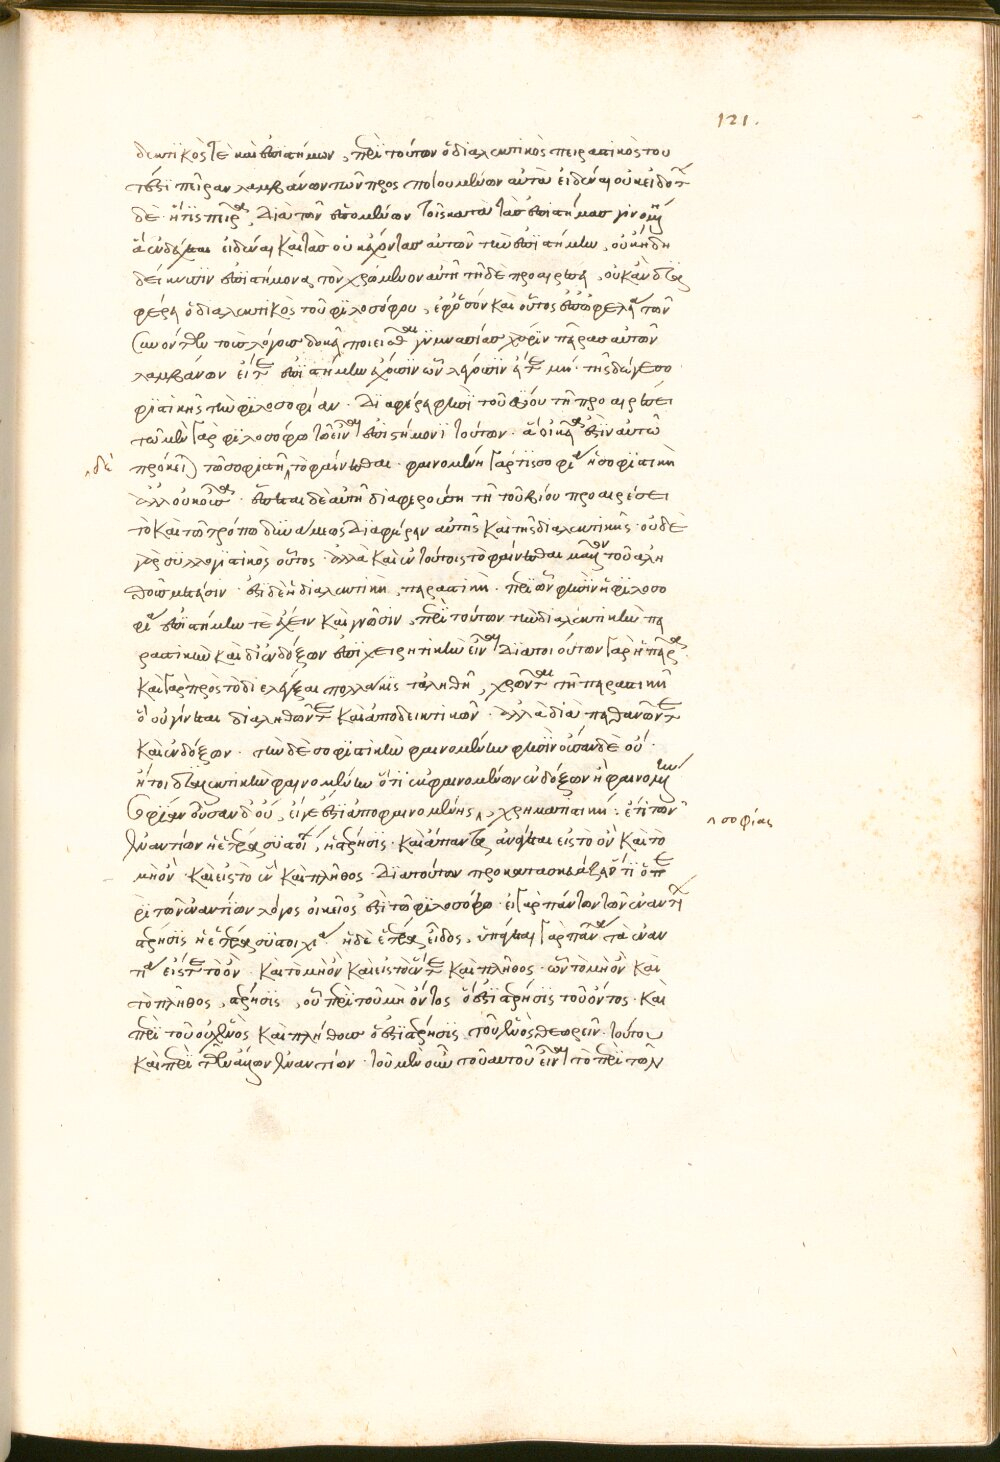 121.
δεικτικός τε καὶ ἐπιστήμων, περὶ τούτων ὁ διαλεκτικὸς πειραστικὸς του
τέστι πεῖραν λαμβάνων τῶν προσποιουμένων αὐτὰ εἰδέναι οὐκ εἰδότ
δὲ. ἥτις πεῖρα, διὰ τῶν ἑπομένων τοῖς κατὰ τὰς ἐπιστήμας γινομ
ἃ ἐνδέχεται εἰδέναι καὶ τὰς οὐκ ἔχοντας αὐτῶν τὴν ἐπιστήμην, οὐκ ἤδη
δείκνυσιν ἐπιστήμονα τὸν χρώμενον αὐτῇ τῇ δὲ προαιρέσει, οὐκ ἂν δια
φέρῃ ὁ διαλεκτικὸς τοῦ φιλοσόφου, ἐφ' ὅσον καὶ οὗτος ἐπ' ὠφελείᾳ τῶν
συνόντων τοὺς λόγους δοκεῖ ποιεῖσθαι γυμνασίας χάριν πεῖρας αὐτῶν
λαμβάνων εἴτε ἐπιστήμην ἔχουσιν ὧν λέγουσιν εἴτε μή. τῆς δέ γε σο
φιστικῆς τὴν φιλοσοφίαν. διαφέρει φησὶ τοῦ βίου τῇ προαιρέσει
τῷ μὲν γὰρ φιλοσόφῳ τὸ εἶναι ἐπιστήμονι τούτων. ἃ οἰκεῖα ἐστὶν αὐτῷ
δὲ
πρόκειται τῷ σοφιστῇ τὸ φαίνεσθαι. φαινομένη γάρ τις σοφία ἡ σοφιστικὴ
ἀλλ' οὐκ οὖσα. ἔσται δὲ αὕτη διαφέρουσα τῇ τοῦ βίου προαιρέσει
τὸ καὶ τῷ τρόπῳ δυνάμεως διαφέρειν αὐτῆς καὶ τῆς διαλεκτικῆς. οὐδὲ
γὰρ συλλογιστικὸς οὗτος. ἀλλὰ καὶ ἐν τούτοις τὸ φαίνεσθαι μᾶλλον τοῦ ἀλη
θοῦς μέτεισιν. ἔστι δὲ ἡ διαλεκτικὴ, πειραστικὴ. περὶ ὧν φησὶν ἡ φιλοσο
φία ἐπιστήμην τε ἔχειν καὶ γνῶσιν, περὶ τούτων τὴν διαλεκτικὴν πει
ραστικὴν καὶ δι' ἐνδόξων ἐπιχειρητικὴν εἶναι διὰ τοιούτων γὰρ ἡ πεῖρα
καὶ γὰρ πρὸς τὸ διελέγξαι πολλάκις τἀληθῆ, χρῶνται τῇ πειραστικῇ
ὃ οὐ γίνεται δι' ἀληθῶν τε καὶ ἀποδεικτικῶν. ἀλλὰ διὰ πιθανῶν τε
καὶ ἐνδόξων. τὴν δὲ σοφιστικὴν φαινομένην φησὶν οὖσαν δὲ οὔ.
ἤτοι διαλεκτικὴν φαινομένην ὅτι ἐκ φαινομένων ἐνδόξων ἢ φαινομένην
σοφίαν οὖσαν δ' οὔ, εἴγε ἐστὶ ἀπὸ φαινομένης, χρηματιστική. ἔτι τῶν
σοφίας
ἐναντίων ἡ ἑτέρα συστοιχ, στέρησις. καὶ ἅπαντα ἀνάγεται εἰς τὸ ὂν καὶ τὸ
μὴ ὄν. καὶ εἰς τὸ ἓν καὶ πλῆθος. διὰ τούτων προκατασκευάζει ὅτι ὁ πε
ρὶ τῶν ἐναντίων λόγος οἰκεῖος ἐστὶ τῷ φιλοσόφῳ. εἰ γὰρ πάντων τῶν ἐναντί
στέρησις ἡ ἑτέρα συστοιχία. ἡ δὲ ἑτέρα εἶδος, ἀνάγεται γὰρ πάντα τὰ ἐναν
τία εἴς τε τὸ ὂν. καὶ τὸ μὴ ὂν καὶ εἰς τὸ ἕν τε καὶ πλῆθος. ὧν τὸ μὴ ὂν καὶ
τὸ πλῆθος, στέρησις, οὗ περὶ τοῦ μὴ ὄντος ὅ ἐστι στέρησις τοῦ ὄντος. καὶ
περὶ τοῦ οὐχ ἑνὸς καὶ πλήθους ὅ ἐστι στέρησις τοῦ ἑνὸς θεωρεῖν. τούτου
καὶ περὶ τῶν ἄλλων ἐναντίων. τοῦ μὲν οὖν τοῦ αὐτοῦ εἶναι τὸ περὶ τῶν